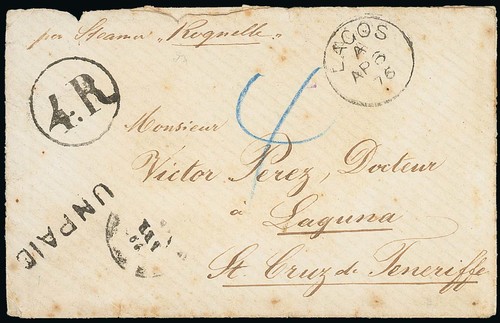 per Steamer „Roquelle"
LAGOS
A
AP 6
76
4.R
4
Monsieur
Victor Perez, Docteur
à Laguna
St. Cruz de Teneriffe
UNPAID
ABR